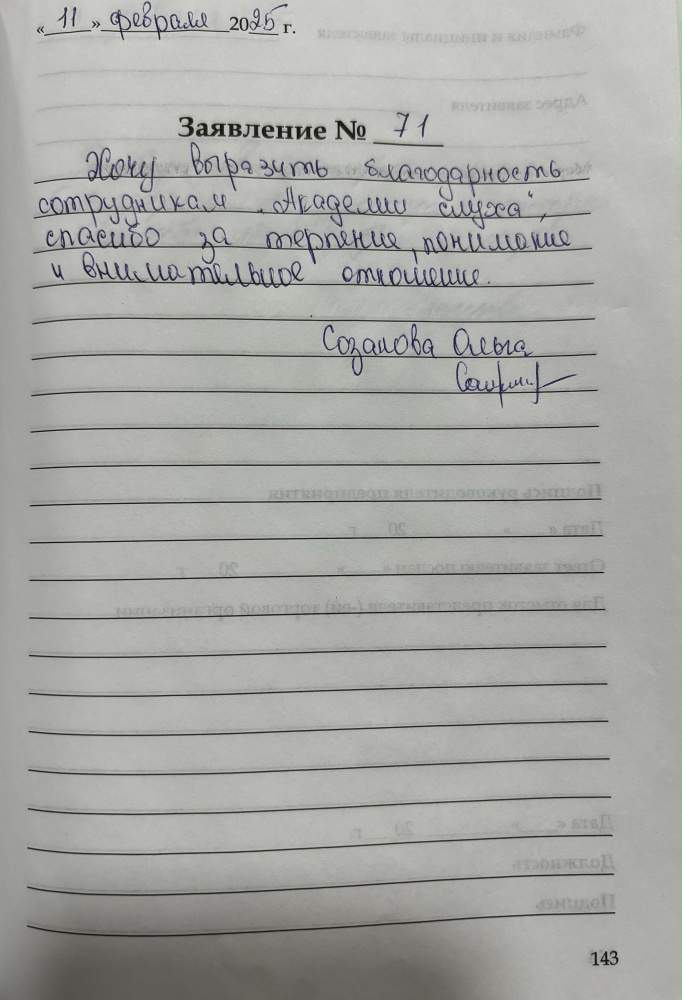 « 11 » февраля 2025 г.
Заявление № 71
Хочу выразить благодарность
сотрудникам „Академии слуха",
спасибо за терпение, понимание
и внимательное отношение.
Созанова Ольга
143